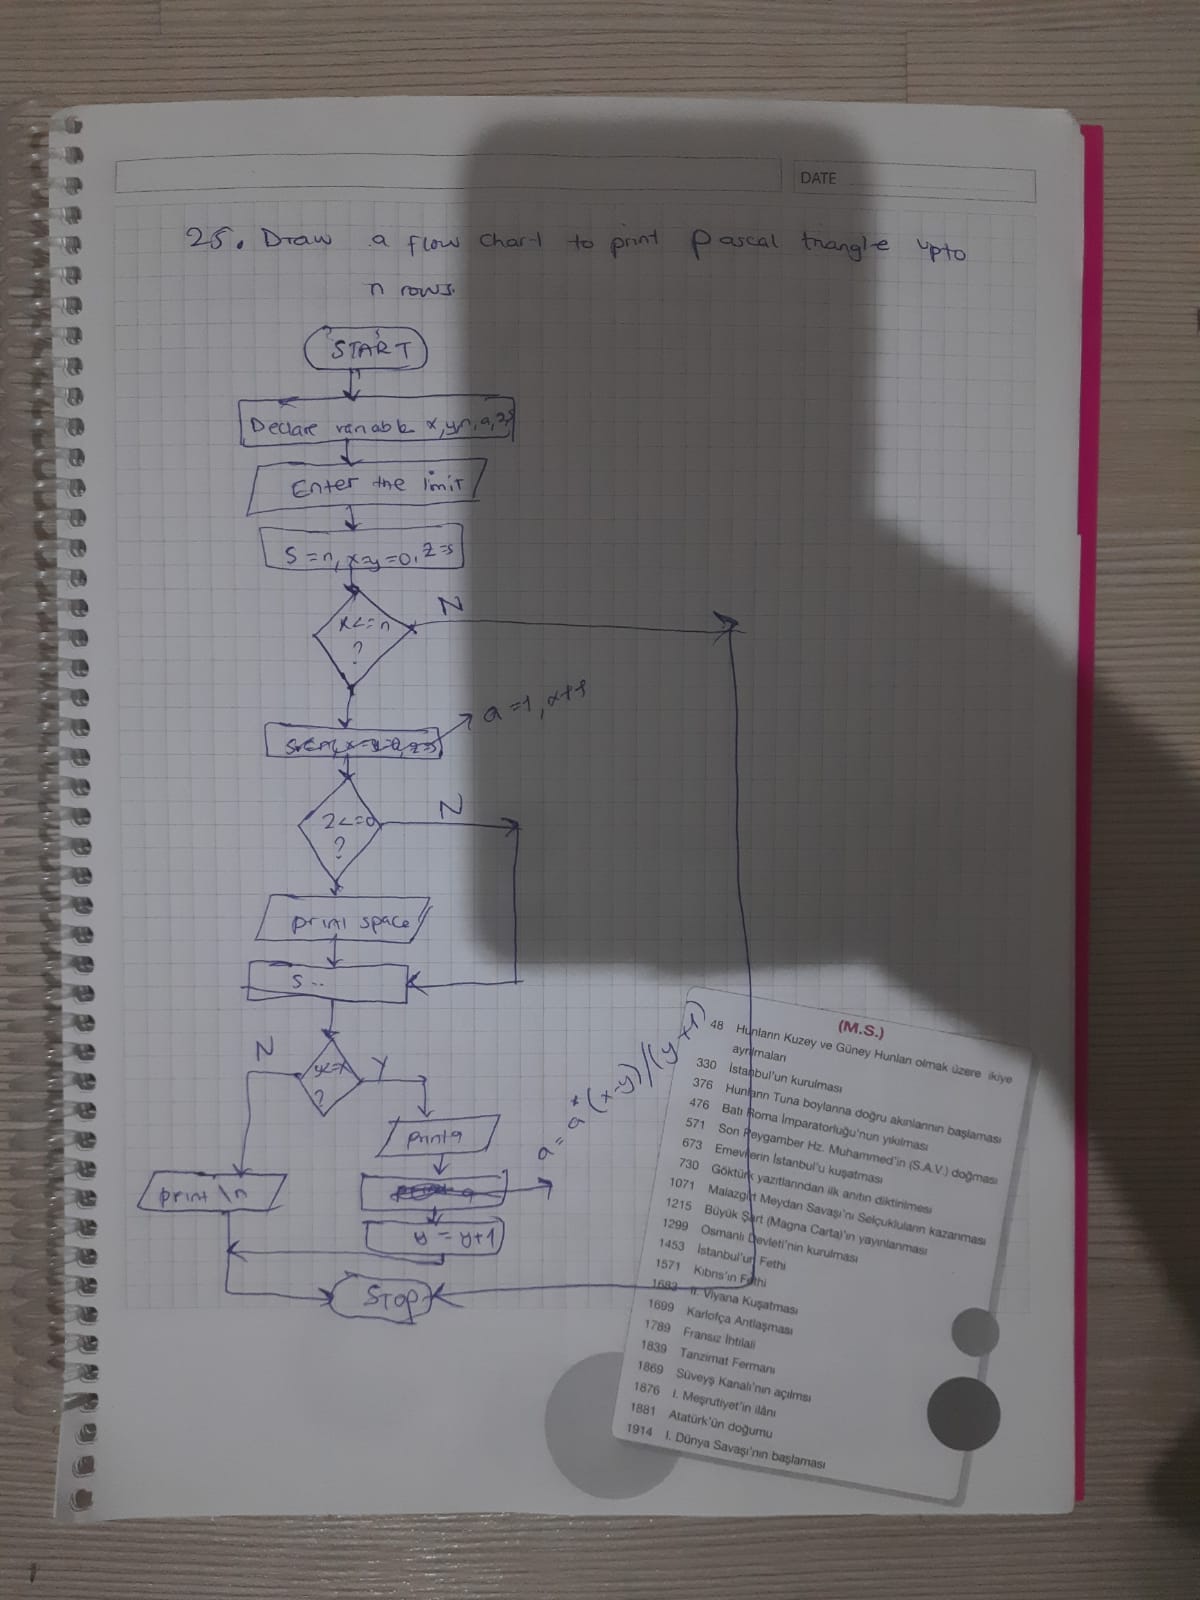 DATE
25. Draw a flow chart to print pascal triangle upto
n rows.
START
Declare variable x,y,n,a,z,s
Enter the limit
S=n, x=y=0, z=s
x<=n
?
N
a=1, x++
z<=0
?
N
print space
s--
y<=x
?
N
Y
print a
a=a*(x-y)/(y+1)
print \n
y=y+1
STOP
(M.S.)
48 Hunların Kuzey ve Güney Hunları olmak üzere ikiye
ayrılmaları
330 İstanbul'un kurulması
376 Hunların Tuna boylarına doğru akınlarının başlaması
476 Batı Roma İmparatorluğu'nun yıkılması
571 Son Peygamber Hz. Muhammed'in (S.A.V.) doğması
673 Emevilerin İstanbul'u kuşatması
730 Göktürk yazıtlarından ilk anıtın diktirilmesi
1071 Malazgirt Meydan Savaşı'nı Selçukluların kazanması
1215 Büyük Şart (Magna Carta)'ın yayınlanması
1299 Osmanlı Devleti'nin kurulması
1453 İstanbul'un Fethi
1571 Kıbrıs'ın Fethi
1683 II. Viyana Kuşatması
1699 Karlofça Antlaşması
1789 Fransız İhtilali
1839 Tanzimat Fermanı
1869 Süveyş Kanalı'nın açılması
1876 I. Meşrutiyet'in ilânı
1881 Atatürk'ün doğumu
1914 I. Dünya Savaşı'nın başlaması